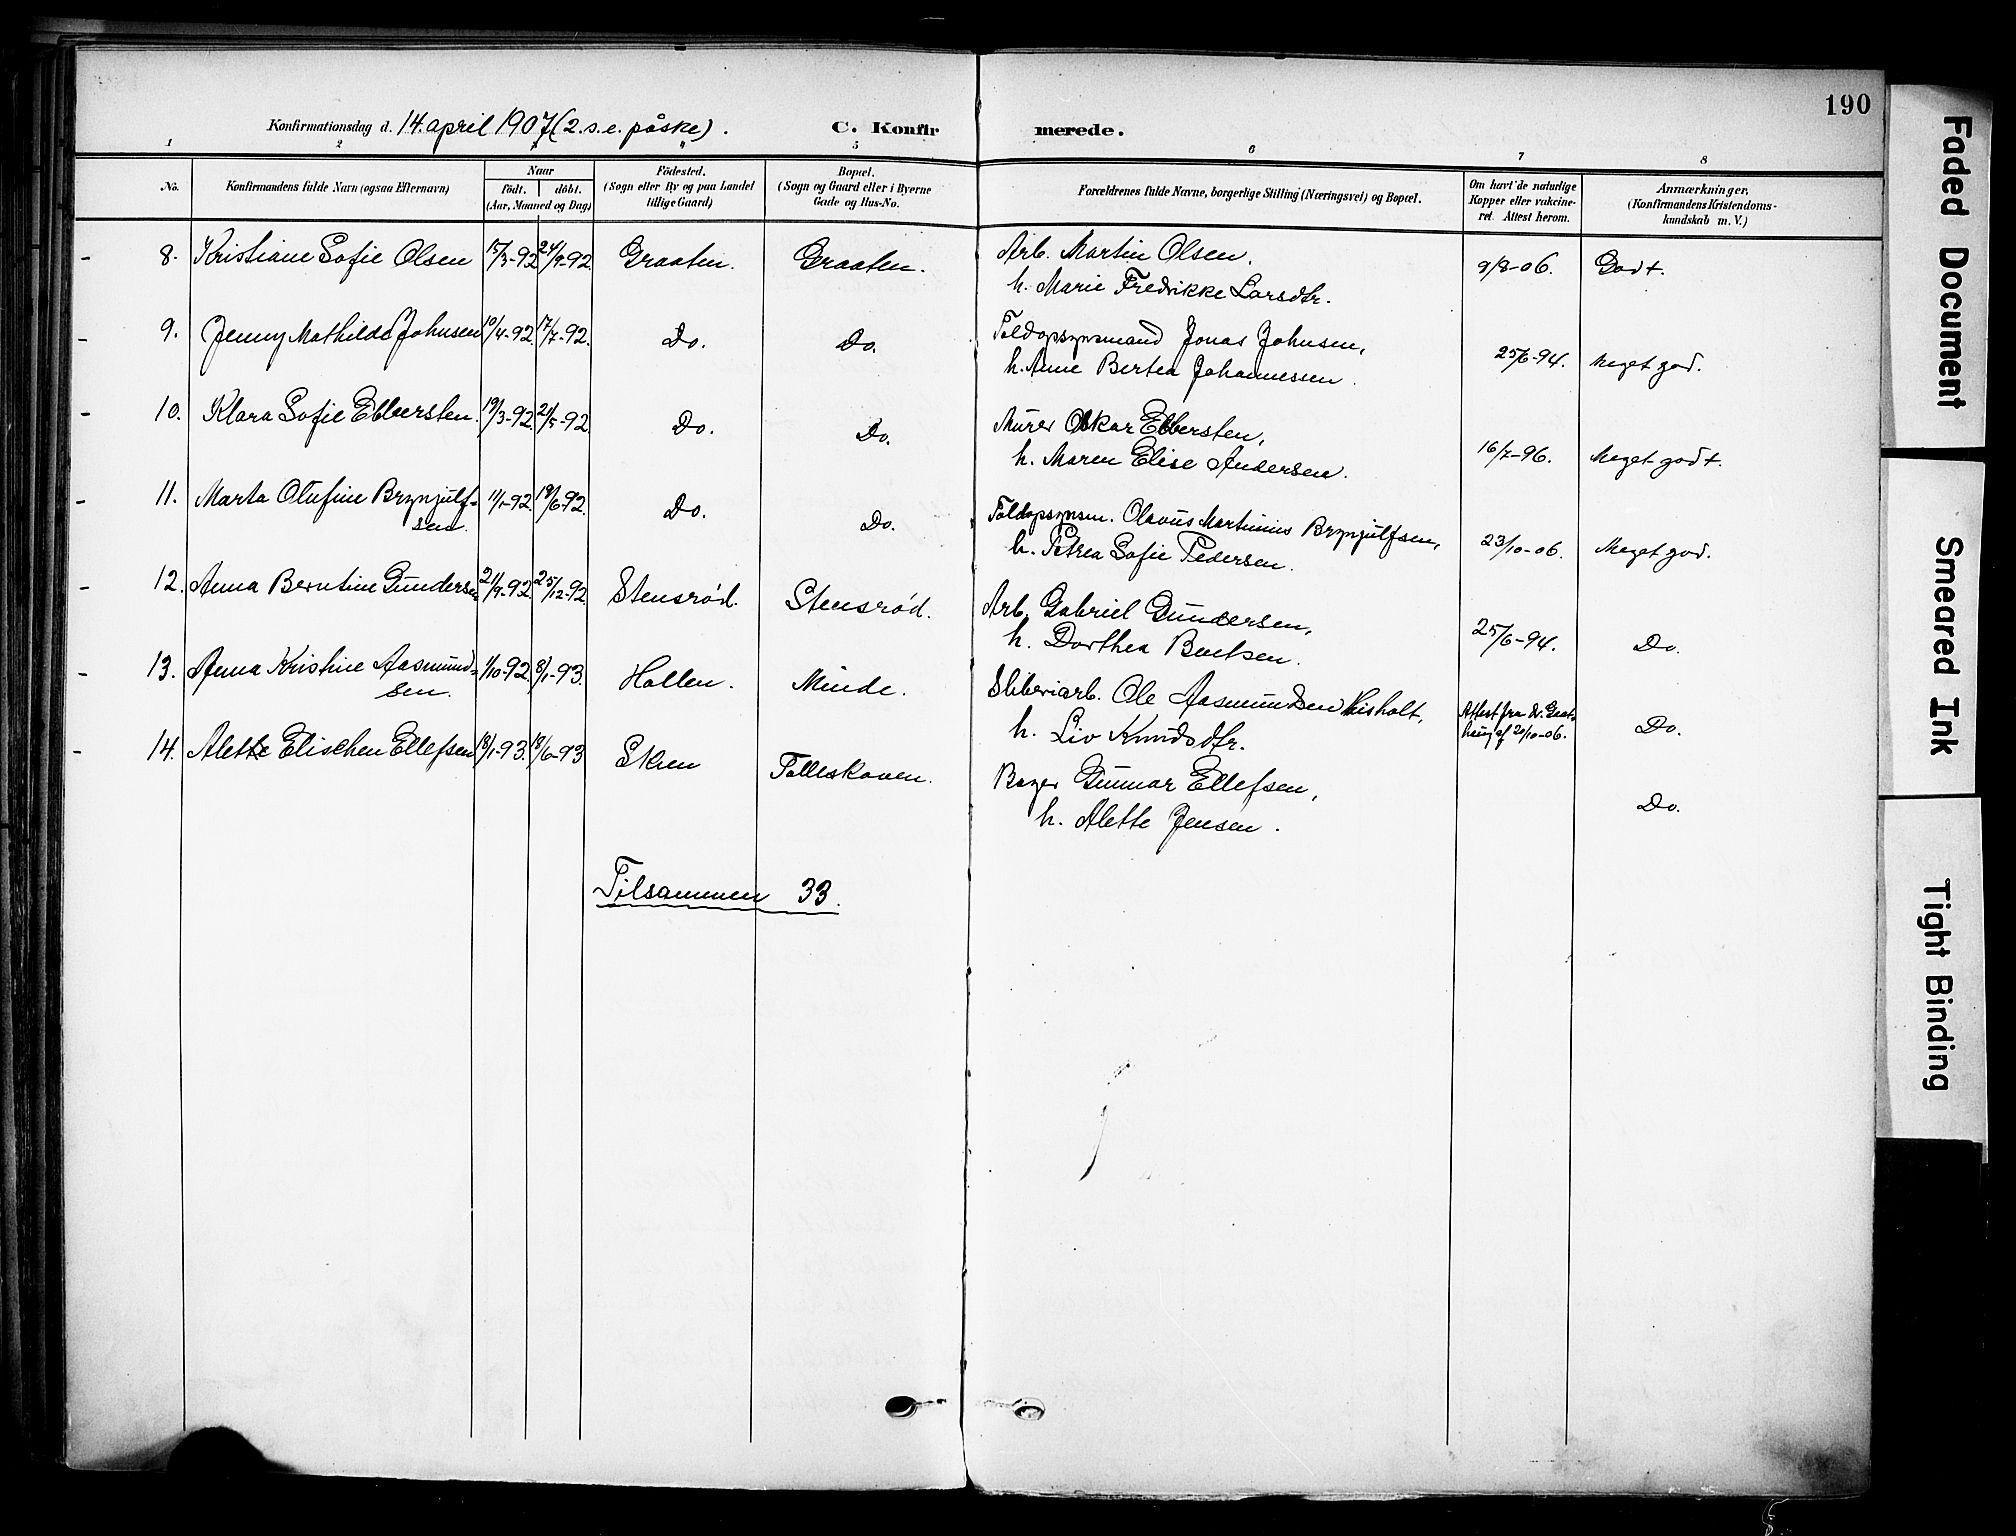 190
Konfirmationsdag d. 14. april 1907 (2. s. e. påske).
C. Konfirmerede.
1 2 3 4 5 6 7 8
No.
Konfirmandens fulde Navn (ogsaa Efternavn)
Naar
født. døbt.
(Aar, Maaned og Dag)
Fødested.
(Sogn eller By og paa Landet
tillige Gaard)
Bopæl.
(Sogn og Gaard eller i Byerne
Gade og Hus-No.
Forældrenes fulde Navne, borgerlige Stilling (Næringsvei) og Bopæl.
Om havt de naturlige
Kopper eller vakcine-
ret. Attest herom.
Anmærkninger,
(Konfirmandens Kristendoms-
kundskab m. V.)
8. Kristiane Sofie Olsen 15/3-92 24/9-92 Graaten. Graaten. Arb. Martin Olsen, 9/8-06. Godt.
h. Marie Fredrikke Larsdtr.
9. Jenny Mathilde Johnsen 10/4-92. 17/7-92. Do. Do. Toldopsynsmand Jonas Johnsen, 25/6-94. Meget god.
h. Anne Bertea Johannessen.
10. Klara Sofie Ebbersten. 19/3-92. 21/5-92. Do. Do. Murer Oskar Ebbersten, 16/7-96. Meget godt.
h. Maren Elise Andersen.
11. Marta Olufine Brynjulf- 11/1-92. 18/6-92. Do. Do. Toldopsynsm. Olavus Martinius Brynjulfsen, 23/10-06. Meget god.
sen. h. Petrea Sofie Pedersen.
12. Anna Berntine Gundersen 21/9-92. 25/12-92. Stensrød. Stensrød. Arb. Gabriel Gundersen, 25/6-94. Do.
h. Dorthea Bentsen.
13. Anna Kristine Aasmund- 1/10-92. 8/1-93. Hollen. Minde. Sliberiarb. Ole Aasmundsen Kisholt, Attest fra dr.
sen. h. Liv Knudsdtr. af 20/10-06. Do.
14. Alette Elischen Ellefsen 13/1-93. 18/6-93 Skien Folleskoven. Bager Gunnar Ellefsen, Do.
h. Alette Jensen.
Tilsammen 33.
Faded Document
Smeared Ink
Tight Binding